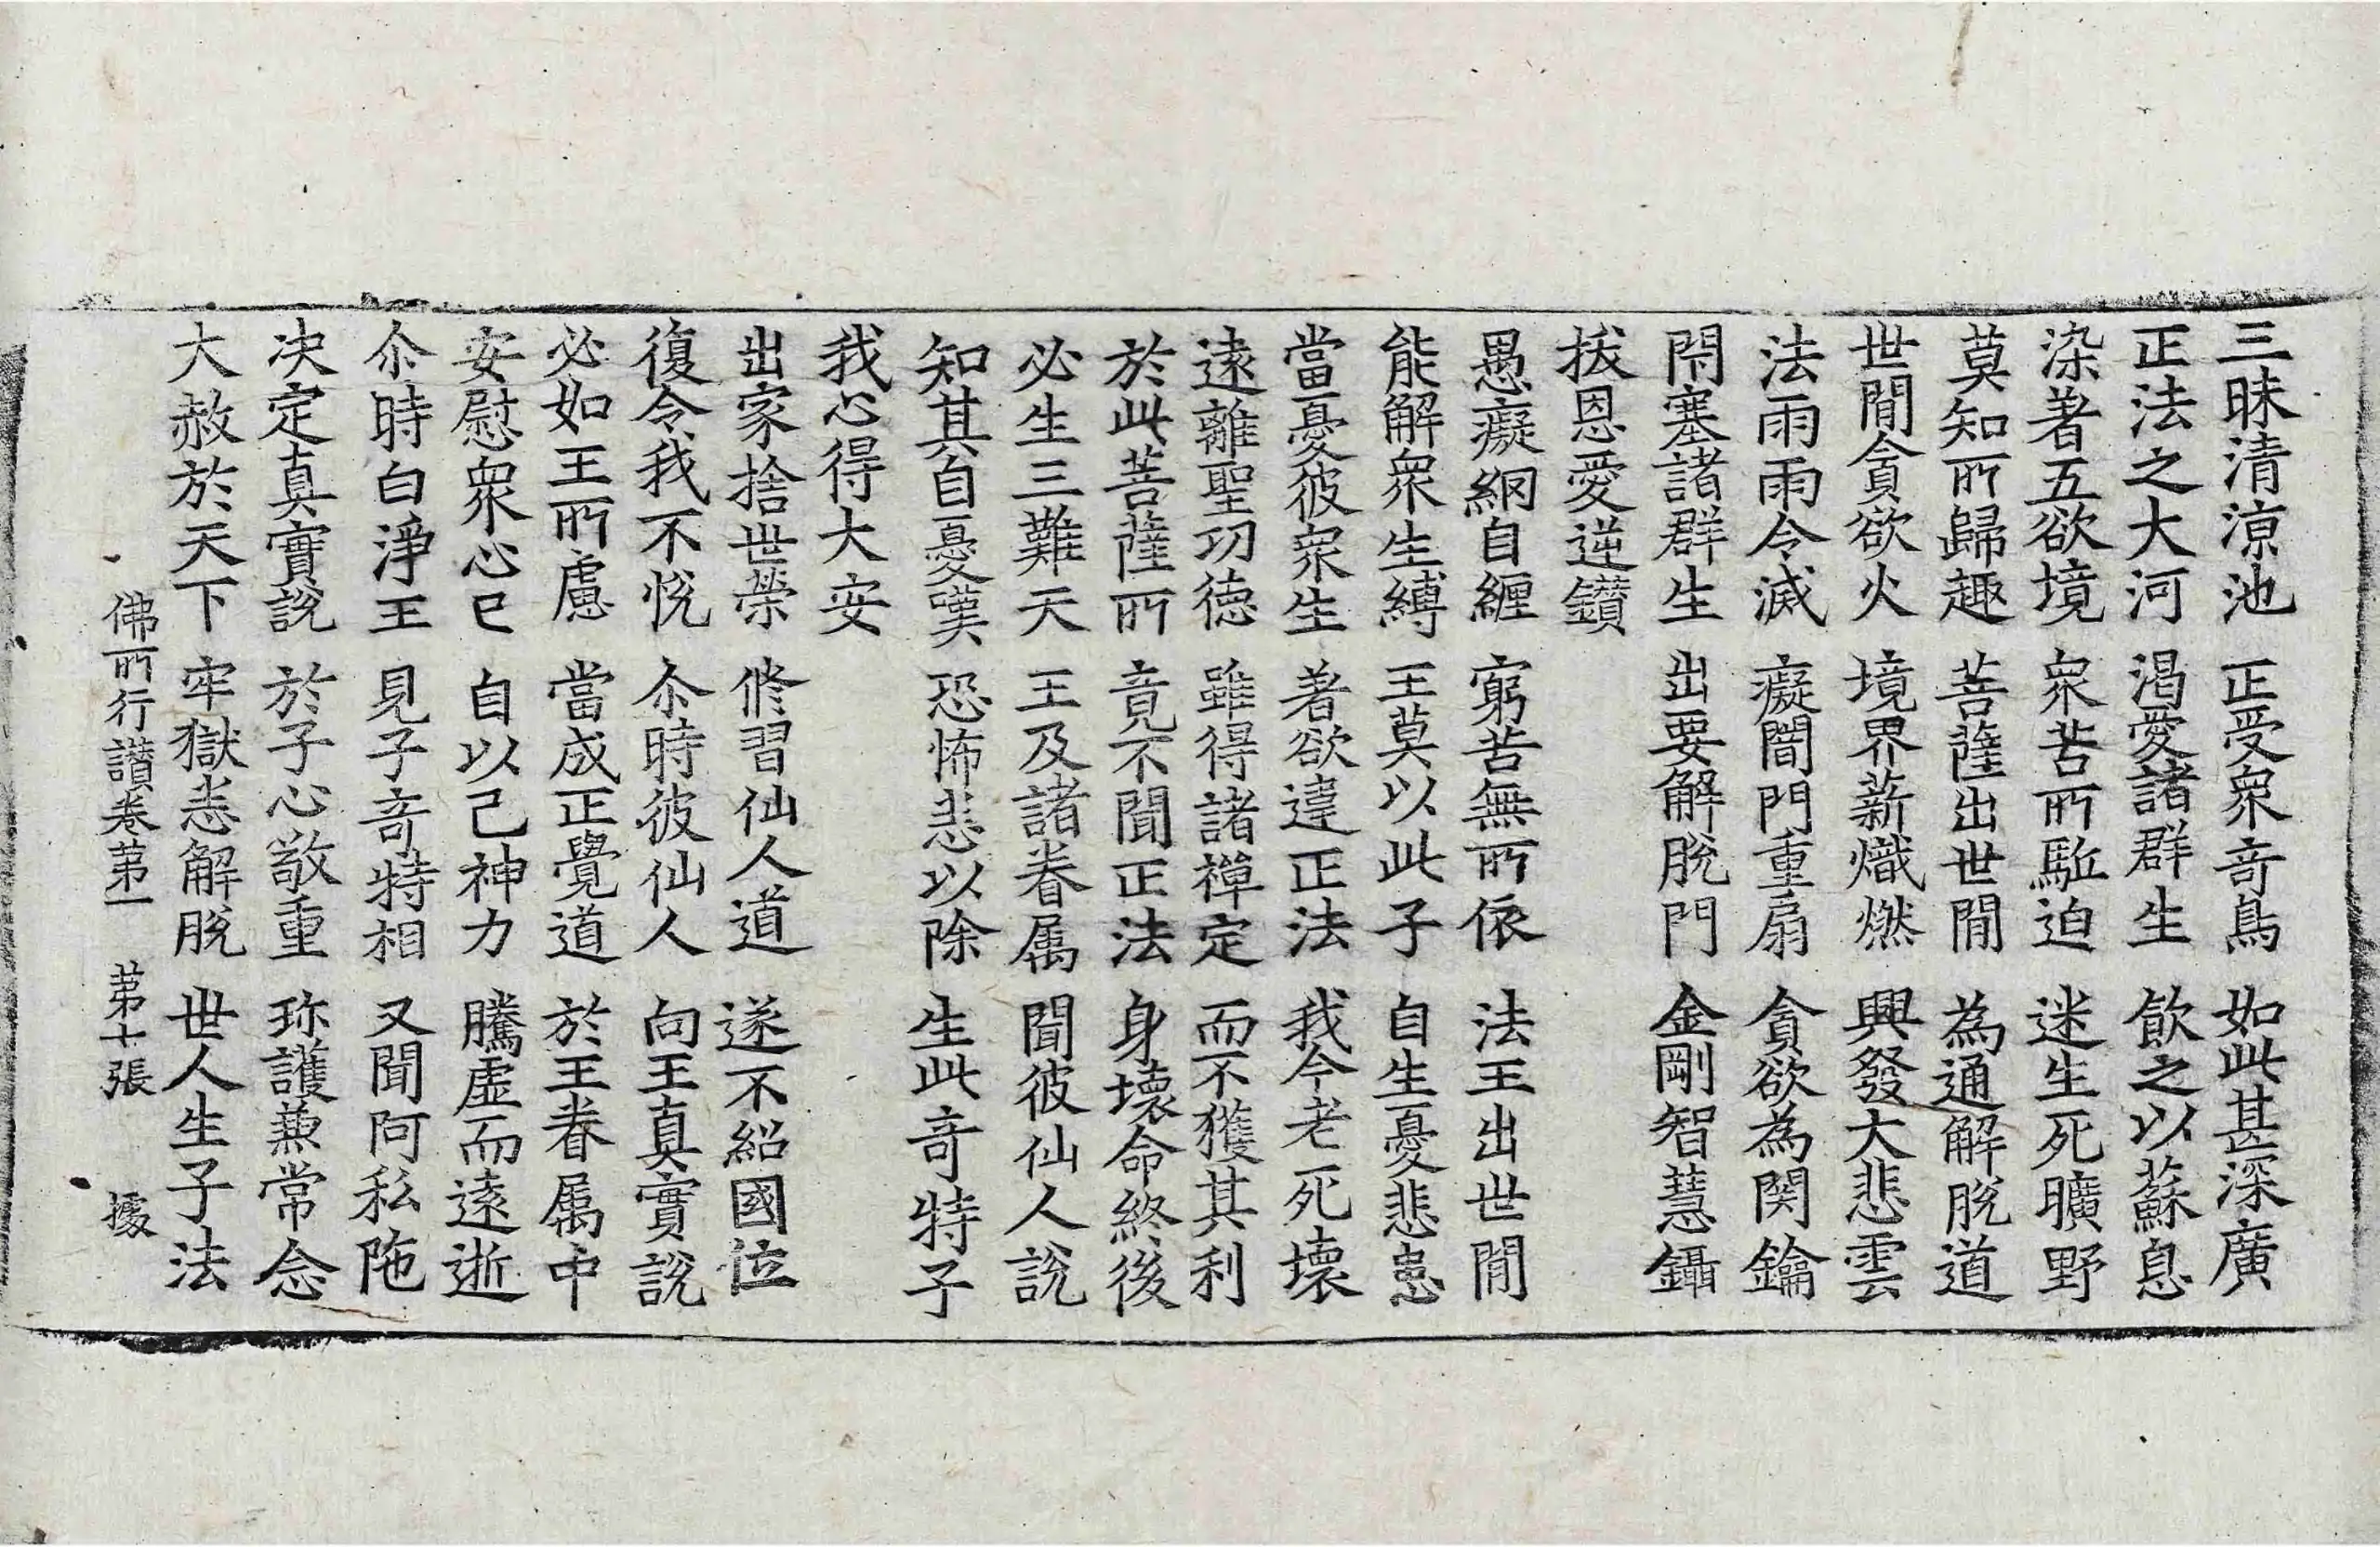 三昧清涼池　正受衆竒鳥　如此甚深廣
正法之大河　渇愛諸群生　飲之以蘇息
染著五欲境　衆苦所駈迫　迷生死曠野
莫知所歸趣　菩薩出世間　為通解脫道
世間貪欲火　境界薪熾燃　興發大悲雲
法雨雨令滅　癡闇門重扇　貪欲為関鑰
閇塞諸群生　出要解脫門　金剛智慧鑷
拔恩愛逆鑽
愚癡網自纏　窮苦無所依　法王出世間
能解衆生縛　王莫以此子　自生憂悲患
當憂彼衆生　著欲違正法　我今老死壞
遠離聖功德　雖得諸禪定　而不獲其利
於此菩薩所　竟不聞正法　身壞命終後
必生三難天　王及諸眷属　聞彼仙人說
知其自憂嘆　恐怖悉以除　生此竒特子
我心得大安
出家捨世榮　修習仙人道　遂不紹國位
復令我不悅　尒時彼仙人　向王真實說
必如王所慮　當成正覺道　於王眷属中
安慰衆心已　自以己神力　騰虛而遠逝
尒時白淨王　見子竒特相　又聞阿私陁
决定真實說　於子心敬重　珎護兼常念
大赦於天下　牢獄悉解脫　世人生子法
佛所行讃卷第一　第十張　㩀